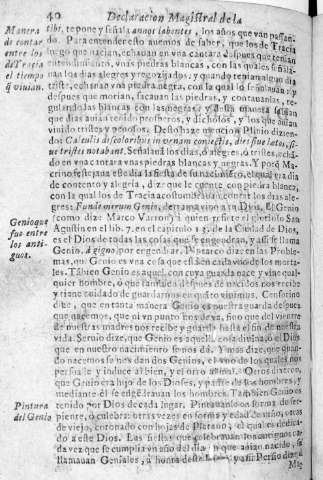 40 Declaracion Magistral de la
Manera de contar entre los de Tracia el tiempo q̃ viuian.
tibi, te pone y señala annos labentes, los años que van passan-
do. Para entender esto auemos de saber, que los de Tracia
luego que nacian, echauan en vna cantara despues que tenian
entendimiento, vnas piedras blancas, con las quales señala-
uan los dias alegres y regozijados: y quando tenian algun dia
triste, echauan vna piedra negra, con la qual lo señalauan: y
despues que morian, sacauan las piedras, y contauanlas,
las blancas con las negras: y desta manera
que dias auian tenido prosperos, y dichosos, y los que auian
viuido tristes y penosos. Desto haze mencion Plinio dizien-
do: Calculis discoloribus in vrnam coniectis, dies siue lætos, si-
ue tristes notabant. Señalauã los dias, ò alegres, ò tristes, echã-
do en vna cantara vnas piedras blancas y negras. Y porq̃ Ma-
crino festejaua este dia la fiesta de su nacimiẽto, el qual era dia
de contento y alegria, dize que le cuente con piedra blanca,
con la qual los de Tracia acostumbrauan contar los dias ale-
gres. Funde merum Genio, derrama vino a tu Dios. El Genio
Genio que fue entre los anti- guos.
(como dize Marco Varron) a quien refiere el glorioso San
Agustin en el lib. 7. en el capitulo 13. de la Ciudad de Dios,
es el Dios de todas las cosas que se engendran, y assi se llama
Genio. A gigno, por engendrar. Pisearco dize en las Proble-
mas, que Genio es vna cosa que està en cada vno de los morta-
les. Tãbien Genio es aquel con cuya guarda nace y viue qual-
quier hombre, ò que llamada despues de nacidos nos recibe
y tiene cuidado de guardarnos en quanto viuimos. Censorino
dize, que con tanta manera Genio es nuestra guarda despues
que nacemos, que ni vn punto nos dexa, sino que del vientre
de nuestras madres nos recibe y guarda hasta el fin de nuestra
vida. Seruio dize, que Genio es aquella cosa diuina, ò el Dios
que en nuestro nacimiento se nos dà. Y mas dize, que quan-
do nacemos se nos dan dos Genios, el vno de los quales nos
persuade y induce al bien, y el otro al mal. Otros dixeron,
que Genio era hijo de los Dioses, y padre de los hombres, y
mediante èl se engendrauan los hombres. Tambien Genio es
Pintura del Genio
tenido por Dios de cada lugar. Pintauanlo en forma de ser-
piente, ò culebra: otras vezes en forma y edad de niño, otras
de viejo, coronado con hojas de Platano, el qual es dedica-
do a este Dios. Las fiestas que celebrauan los antiguos ca-
da vez que se cumplia vn año del dia en que auian nacido, se
llamauan Geniales, a honra deste Genio: y assi Persio dize a
Ma-